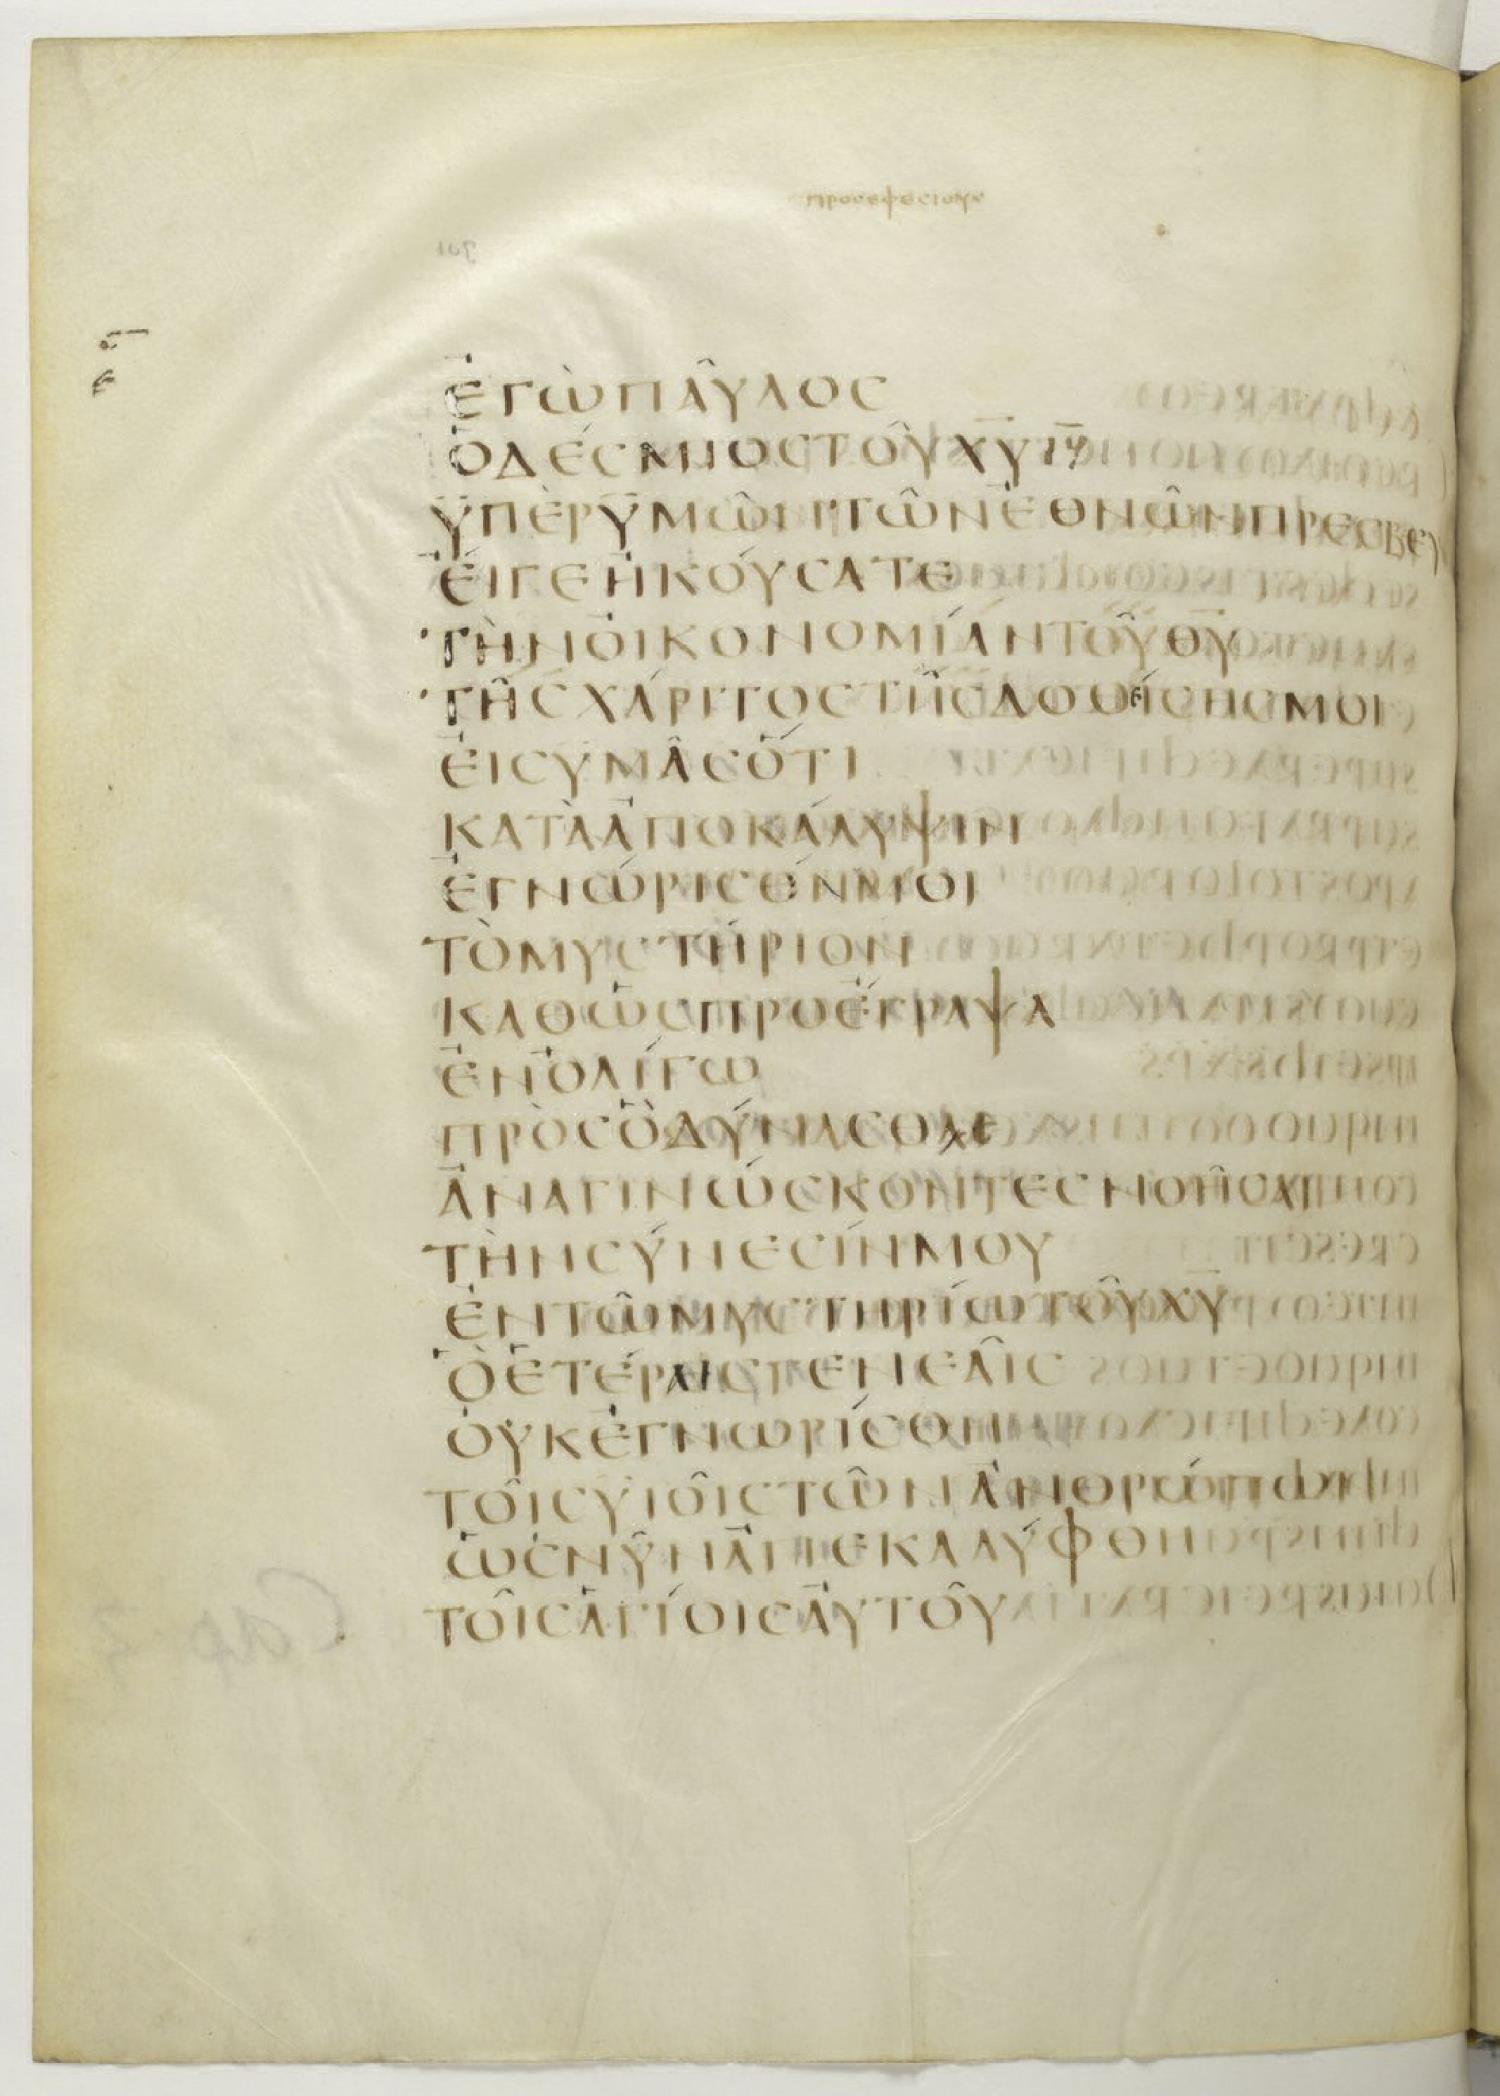 προσεφεσιους
ἐγὼπᾶυλος
ὁδέσμιοστοῦχ̅υ̅ι̅υ̅
ὑπὲρὑμῶντῶνἐθνῶνπρεσβευ
ἐίγεἠκούσατε
τὴνὀικονομίαντοῦθ̅υ̅
τῆσχάριτοστῆσδοθείσησμοι
ἐισυμᾶσὅτι
κατὰἀποκάλυψιν
ἐγνώρισένμοι
τὸμυστήριον
καθὼσπροέγραψα
ἐνὀλίγω
πρὸσὃδύνασθαε
ἀναγινώσκοντεσνοῆσαι
τὴνσύνεσίνμου
ἐντῶμυστηρίωτοῦχ̅υ̅
ὃἑτέραισγενεᾶισ
ὀυκἐγνωρίσθη
τοῖσυἱοῖστῶνἀνθρώπων
ὡσνῦνἀπεκαλύφθη
τοῖσἁγίοισἀυτοῦ